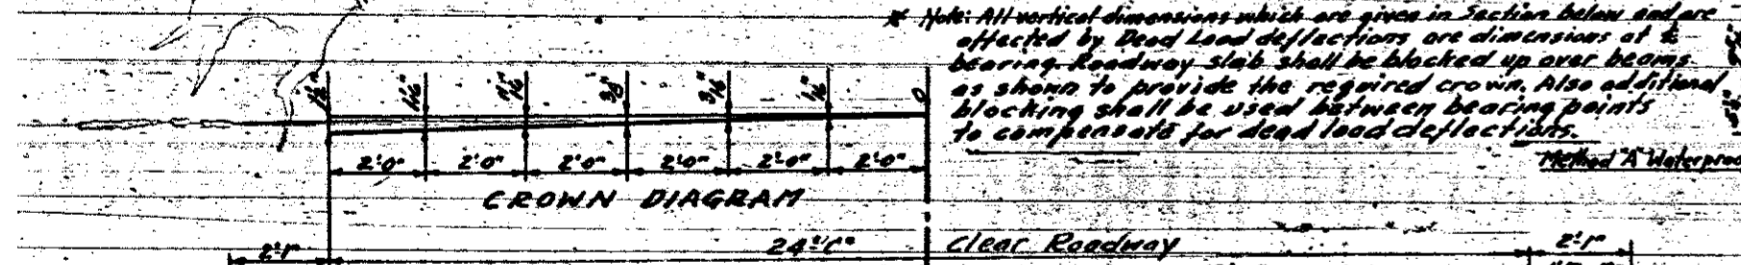 * Note: All vertical dimensions which are given in Section below and are
affected by Dead Load deflections are dimensions at ℄
bearing. Roadway slab shall be blocked up over beams
as shown to provide the required crown. Also additional
blocking shall be used between bearing points
to compensate for dead load deflections.
Method "A" Waterproo
0
2'-0" 2'-0" 2'-0" 2'-0" 2'-0" 2'-0"
CROWN DIAGRAM
2'-1" 24'-0" Clear Roadway 2'-1"